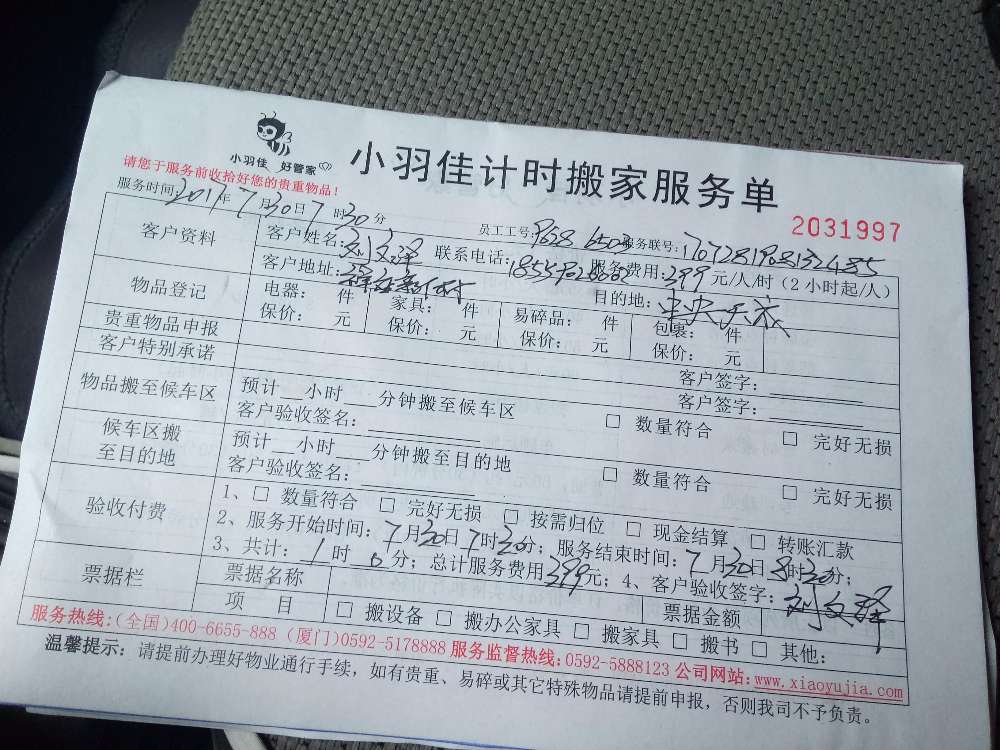 小羽佳 好管家
小羽佳计时搬家服务单
请您于服务前收拾好您的贵重物品！
2031997
服务时间：2017年7月30日7时30分 员工工号： 服务联号：
客户资料 客户姓名：刘文泽 联系电话： 服务费用：399元/人/时（2小时起/人）
客户地址： 目的地：中央天成
物品登记 电器： 件 家具： 件 易碎品： 件 包裹： 件
保价： 元 保价： 元 保价： 元 保价： 元
贵重物品申报 客户签字：
客户特别承诺 客户签字：
物品搬至候车区 预计 小时 分钟搬至候车区 □ 数量符合 □ 完好无损
客户验收签名：
候车区搬至目的地 预计 小时 分钟搬至目的地 □ 数量符合 □ 完好无损
客户验收签名：
验收付费 1、□ 数量符合 □ 完好无损 □ 按需归位 □ 现金结算 □ 转账汇款
2、服务开始时间：7月30日7时30分；服务结束时间：7月30日8时30分；
3、共计：1时0分；总计服务费用399元；4、客户验收签字：刘文泽
票据栏 票据名称 票据金额
项 目 □ 搬设备 □ 搬办公家具 □ 搬家具 □ 搬书 □ 其他：
服务热线：（全国）400-6655-888（厦门）0592-5178888 服务监督热线：0592-5888123 公司网站：www.xiaoyujia.com
温馨提示：请提前办理好物业通行手续，如有贵重、易碎或其它特殊物品请提前申报，否则我司不予负责。